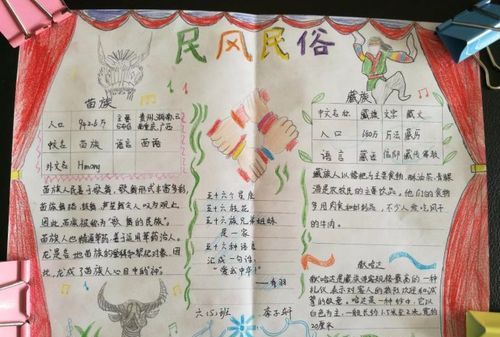 民风民俗
苗族
人口
942.6万
主要
分布区
贵州、湖南、云
南、重庆、广西
帐名
苗族
语言
苗语
外文名
Hmong
苗族人民善于歌舞,歌舞形式丰富多彩,
苗族舞蹈、鼓舞、芦笙舞更令人叹为观止,
因此苗族被称为"歌舞的民族"。
苗族人也精通草药,善于运用草药治人。
龙是否
因
此,龙成了苗族人心目中的"神"。
五十六个星座
五十六枝花
五十六族兄弟姐妹
是一家
五十六种语言
汇成一句话:
"爱我中华!"
六(5)班
李子轩
藏族
中文名称
藏族
文字
藏文
人口
660万
历法
藏历
语言
藏语
信仰
藏传佛教
藏族人以糌粑为主要食物,酥油茶、青稞
酒是农牧民的主要饮品。他们的食物
多用肉食和奶制品,不少人爱吃风干
的牛肉。
献哈达
献哈达是藏族待客规格最高的一种
礼仪,表示对客人的热烈欢迎和诚
挚的敬意,哈达是一种纱巾,它以
白色为主,一般长约1.5米至2米,宽约
20厘米